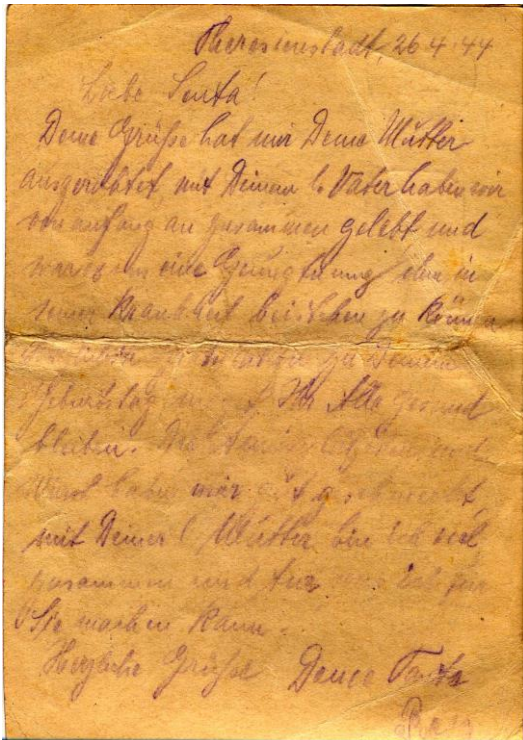 Theresienstadt, 26.4.44
Liebe Senta!
Deine Grüße hat mir Deine Mutter
ausgerichtet, mit Deinem l. Vater haben wir
von anfang an zusammen gelebt und
war es uns eine Genugtuung ihm in
seiner Krankheit beistehen zu können
zu Deinem
Geburtstag Ihr Alle gesund
bleiben.
haben mir gut geschmeckt,
mit Deiner l. Mutter bin ich viel
zusammen und tue was ich für
Sie machen kann.
Herzliche Grüße Deine Tante